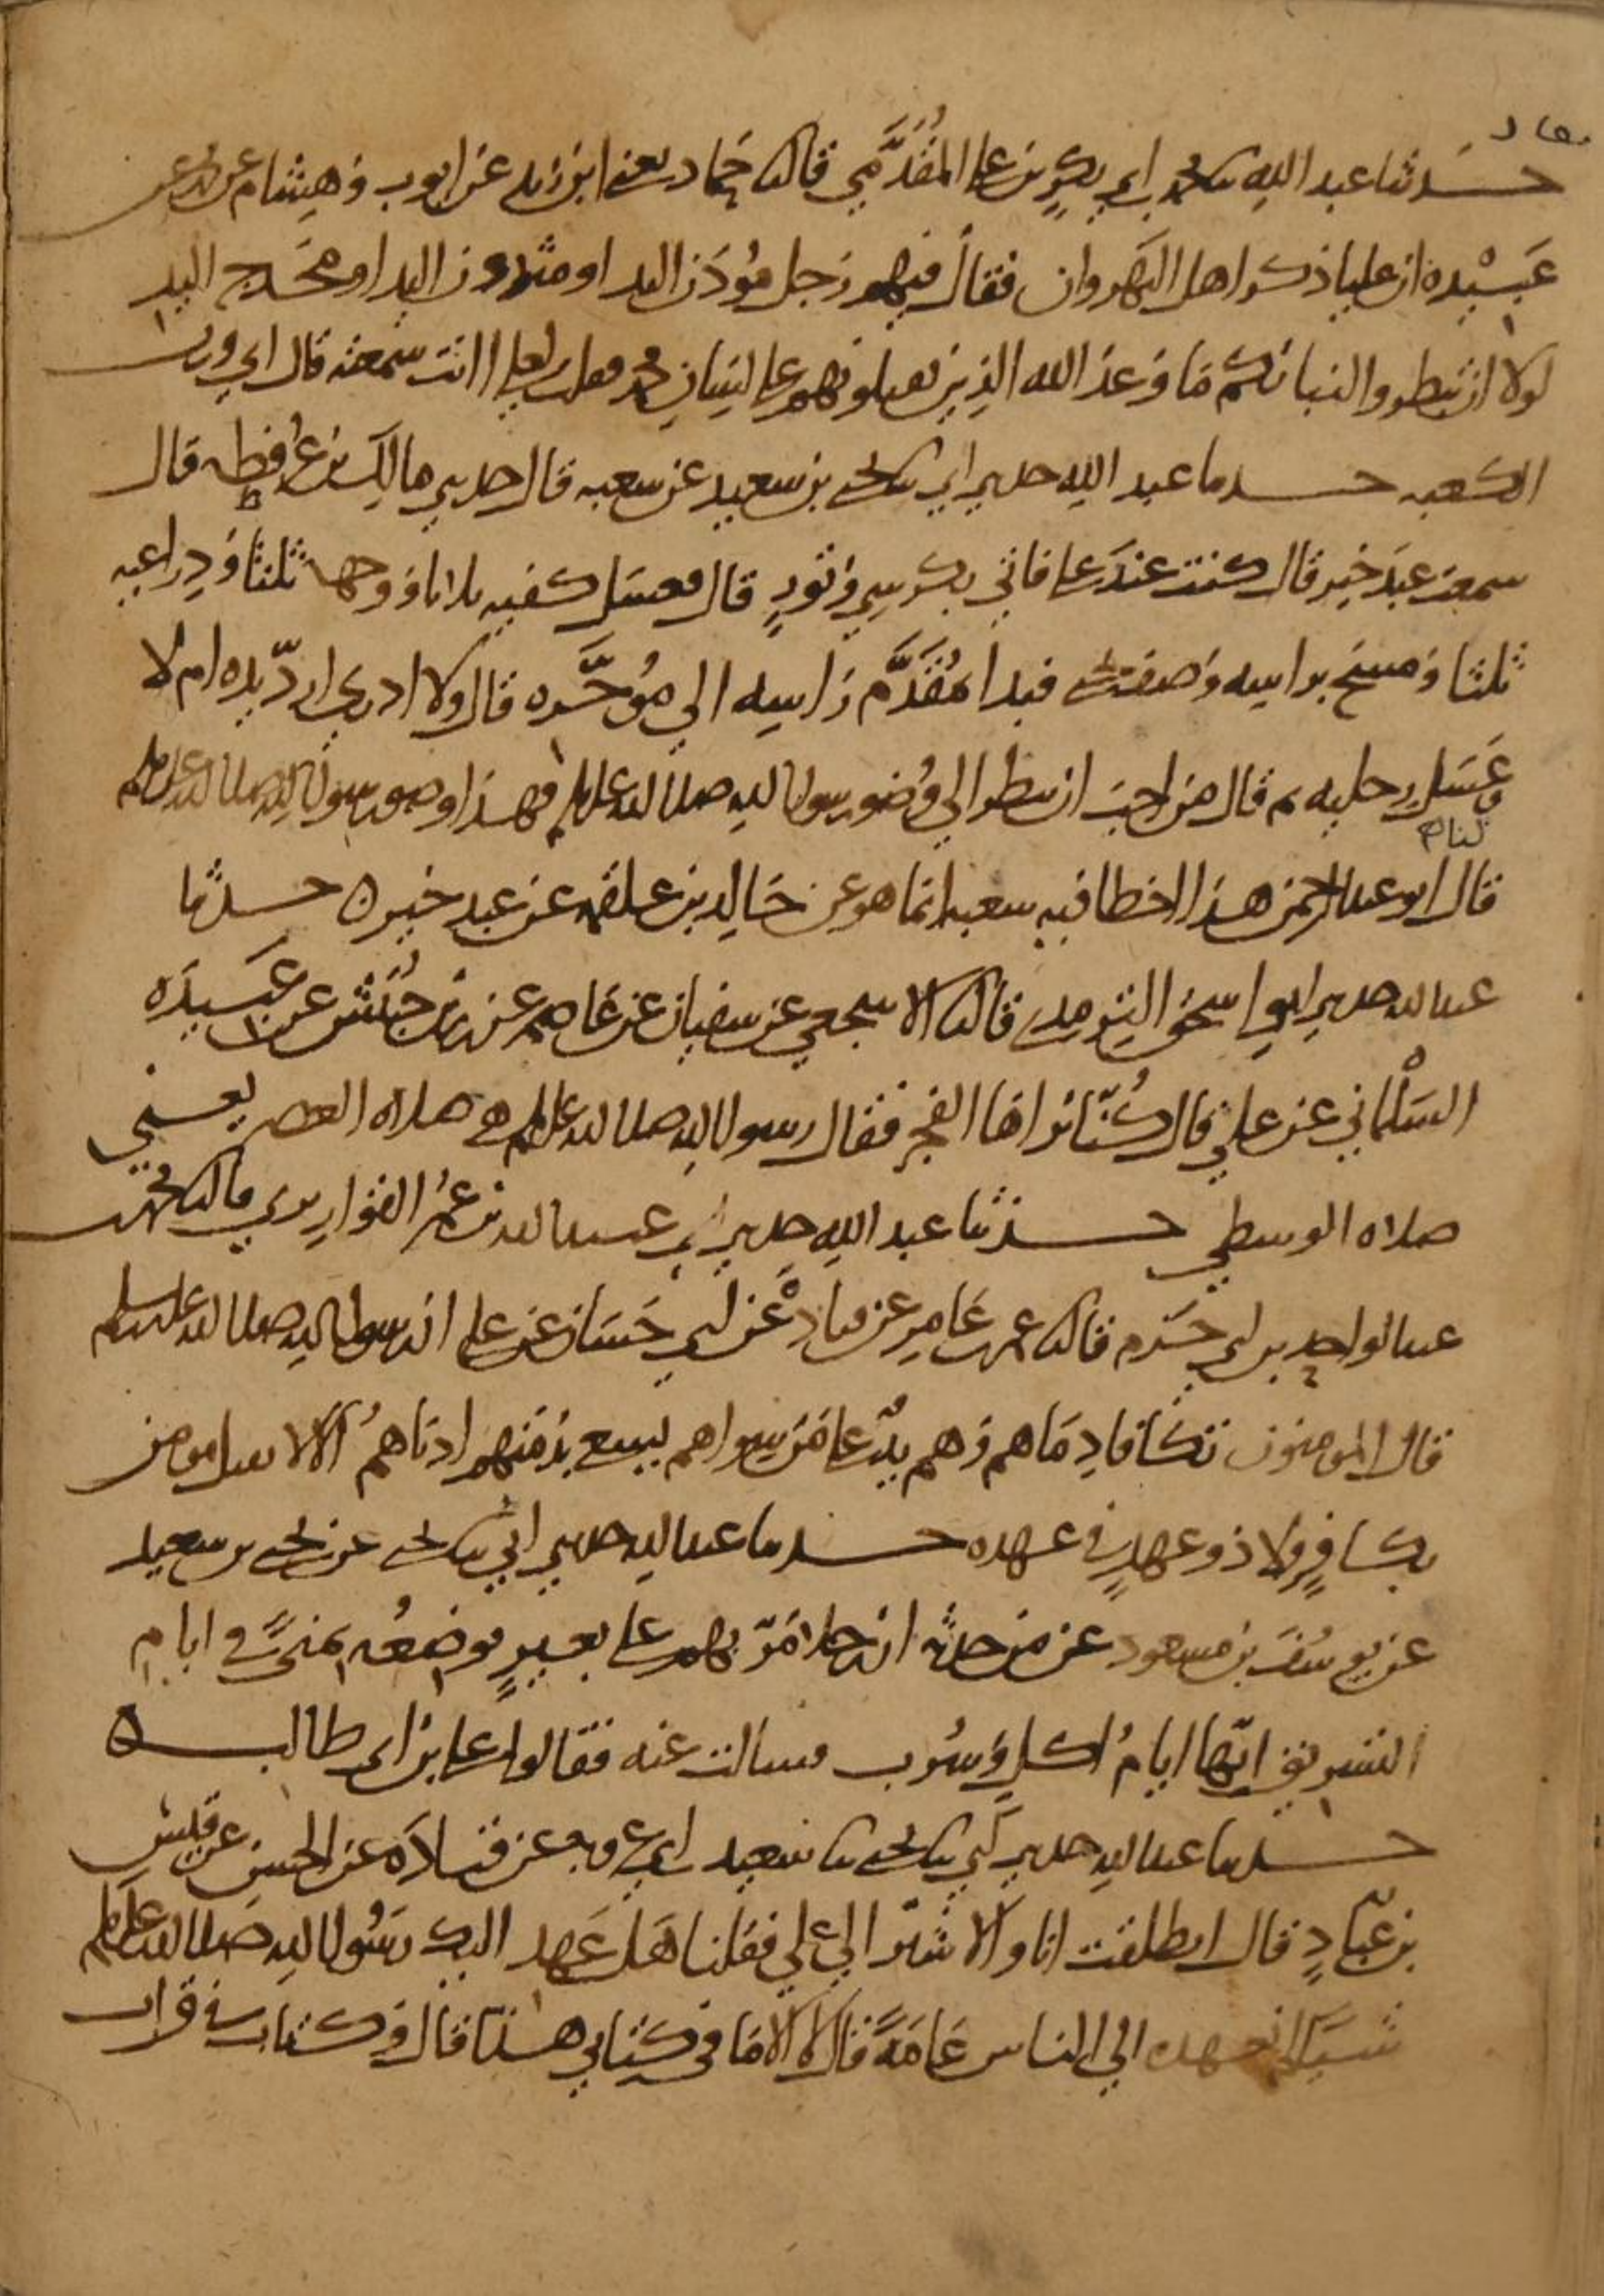 حدثنا عبد الله نا محمد بن ابي بكر بن علي المقدمي قال نا حماد يعني ابن زيد عن ايوب وهشام عن محمد عن
عبيده ان عليا ذكر اهل النهروان فقال فيهم رجل مودن اليد او مثدون اليد او مخدج اليد
لولا ان تبطروا لنباتكم ما وعد الله الذين يقتلونهم على لسان محمد فقلت لعلي اانت سمعته قال اي ورب
الكعبه حدثنا عبد الله حدثني ابي نا يحيى بن سعيد عن شعبه قال حدثني مالك بن عرفطه قال
سمعت عبد خير قال كنت عند علي فاتي بكرسي وتور قال فغسل كفيه ثلاثا ووجهه ثلثا وذراعيه
ثلثا ومسح براسه وصف يحيى فبدا بمقدم راسه الى موخره قال ولا ادري ارد يده ام لا
وغسل رجليه ثم قال من احب ان ينظر الى وضو رسول الله صلى الله عليه وسلم فهذا وضو رسول الله صلى الله عليه وسلم
لنا
قال ابو عبد الرحمن هذا اخطا فيه شعبه انما هو عن خالد بن علقمه عن عبد خير ه حدثنا
عبد الله حدثني ابو اسحق الترمذي قال نا الاشجعي عن سفيان عن عاصم عن زر بن حبيش عن عبيده
السلماني عن علي قال كنا نراها الفجر فقال رسول الله صلى الله عليه وسلم هي صلاه العصر يعني
صلاه الوسطى حدثنا عبد الله حدثني عبيد الله بن عمر القواريري قال نا محمد بن
عبد الواحد بن ابي حزم قال نا عمر بن عامر عن قتاده عن ابي حسان عن علي ان رسول الله صلى الله عليه وسلم
قال المومنون تتكافا دماهم وهم يد على من سواهم يسعى بذمتهم ادناهم الا لا يقتل مومن
بكافر ولا ذو عهد في عهده حدثنا عبد الله حدثني ابي نا يحيى عن يحيى بن سعيد
عن يوسف بن مسعود عن من حدثه ان رجلا مر بهم على بعير يوضعه بمنى في ايام
التشريق انها ايام اكل وشرب فسالت عنه فقالوا علي بن ابي طالب ه
حدثنا عبد الله حدثني ابي نا يحيى نا سعيد بن ابي عروبه عن قتاده عن الحسن عن قيس
بن عباد قال انطلقت انا والاشتر الى علي فقلنا هل عهد اليك رسول الله صلى الله عليه وسلم
شيا لم يعهده الى الناس عامة قال لا الا ما في كتابي هذا قال وكتاب في قراب